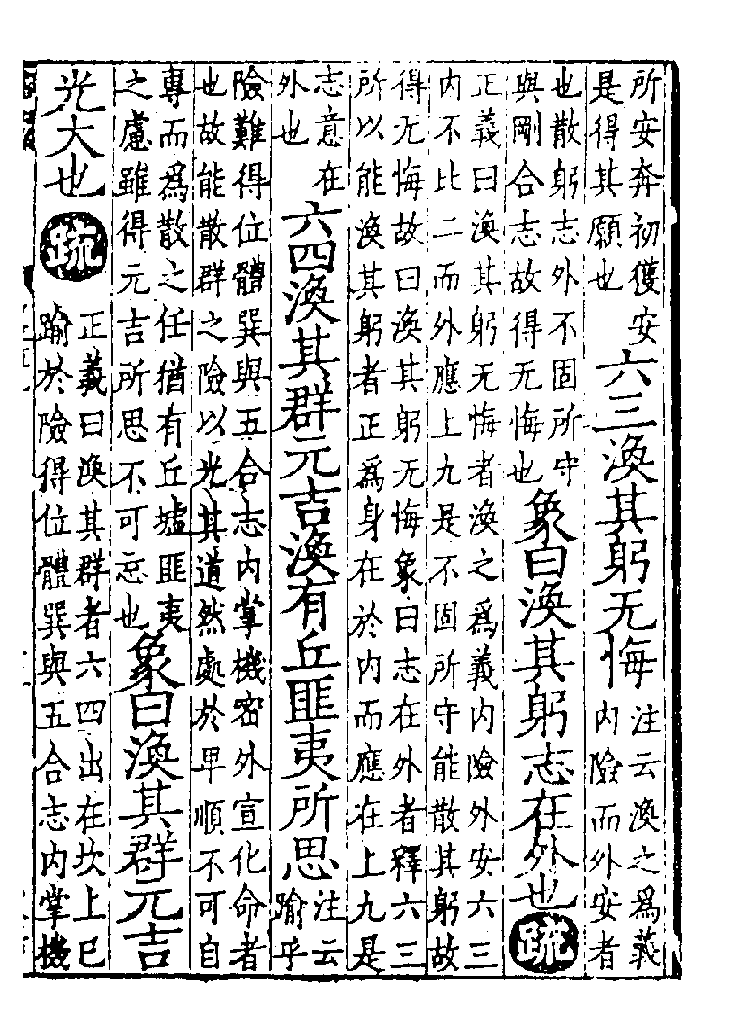 所安奔初獲安
是得其願也
六三渙其躬无悔
注云渙之爲義
內險而外安者
也散躬志外不固所守
與剛合志故得无悔也
象曰渙其躬志在外也
疏
正義曰渙其躬无悔者渙之爲義內險外安六三
內不比二而外應上九是不固所守能散其躬故
得无悔故曰渙其躬无悔象曰志在外者釋六三
所以能渙其躬者正爲身在於內而應在上九是
志意在
外也
六四渙其群元吉渙有丘匪夷所思
注云
踰乎
險難得位體巽與五合志內掌機密外宣化命者
也故能散群之險以光其道然處於早順不可自
專而爲散之任猶有丘墟匪夷
之慮雖得元吉所思不可忘也
象曰渙其群元吉
光大也
疏
正義曰渙其群者六四出在坎上已
踰於險得位體巽與五合志內掌機